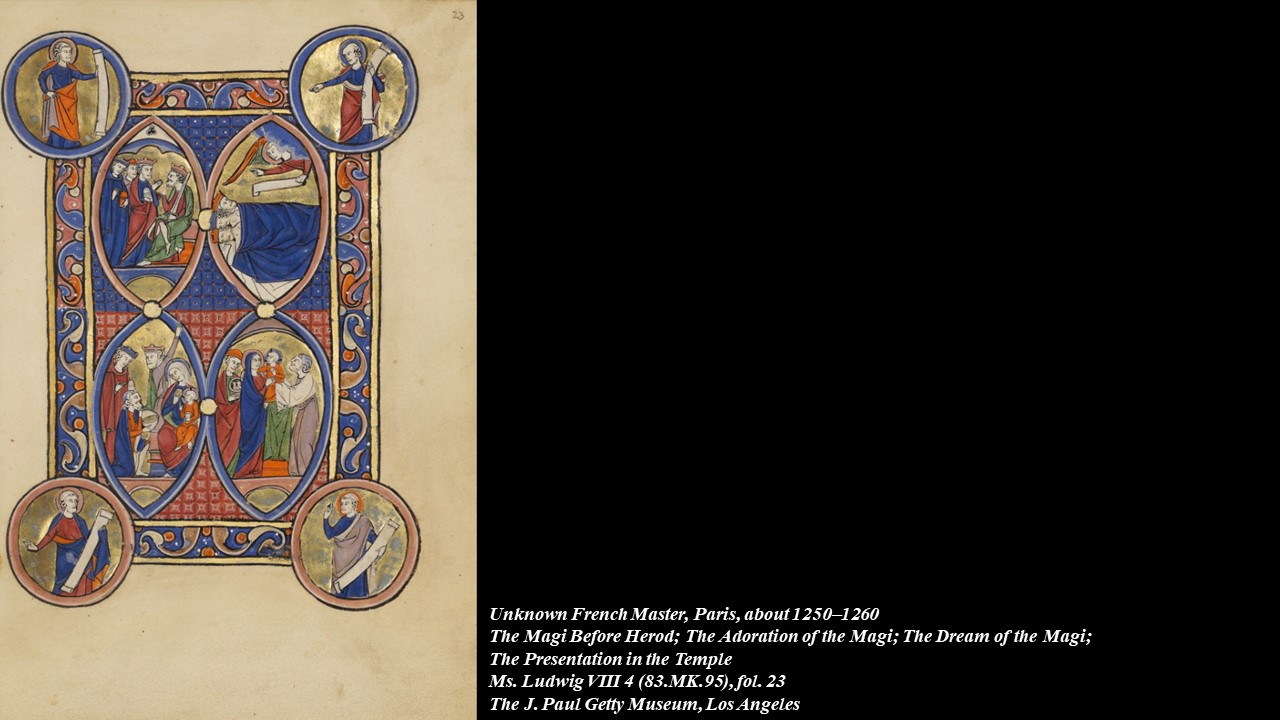 23
Unknown French Master, Paris, about 1250–1260
The Magi Before Herod; The Adoration of the Magi; The Dream of the Magi;
The Presentation in the Temple
Ms. Ludwig VIII 4 (83.MK.95), fol. 23
The J. Paul Getty Museum, Los Angeles